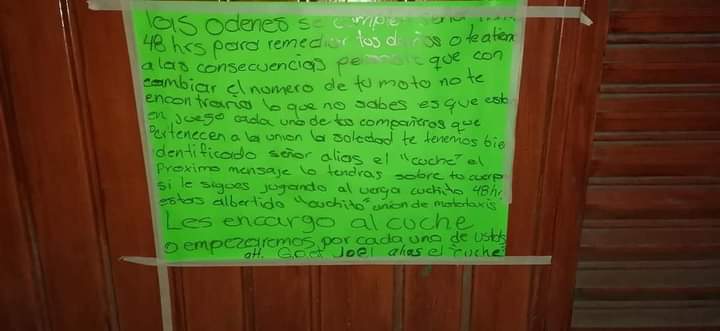 las odenes se cumple
48 hrs para remediar tus daños o te atiene
a las consecuencias que con
cambiar el numero de tu moto no te
encontraria lo que no sabes es que esta
en juego cada uno de tus compañros que
Pertenecen a la union la soledad te tenemos bie
identificado señor alias el "cuche" el
Proximo mensaje lo tendras sobre tu cuerpo
si le sigues jugando al verga cuchito 48 hr
estas albertido "cuchito" union de mototaxis
Les encargo al cuche
o empezaremos por cada uno de ustds
att. Joel alias el "cuche"